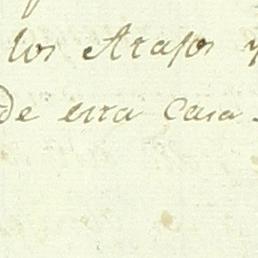 los Atajos y
de esta Casa